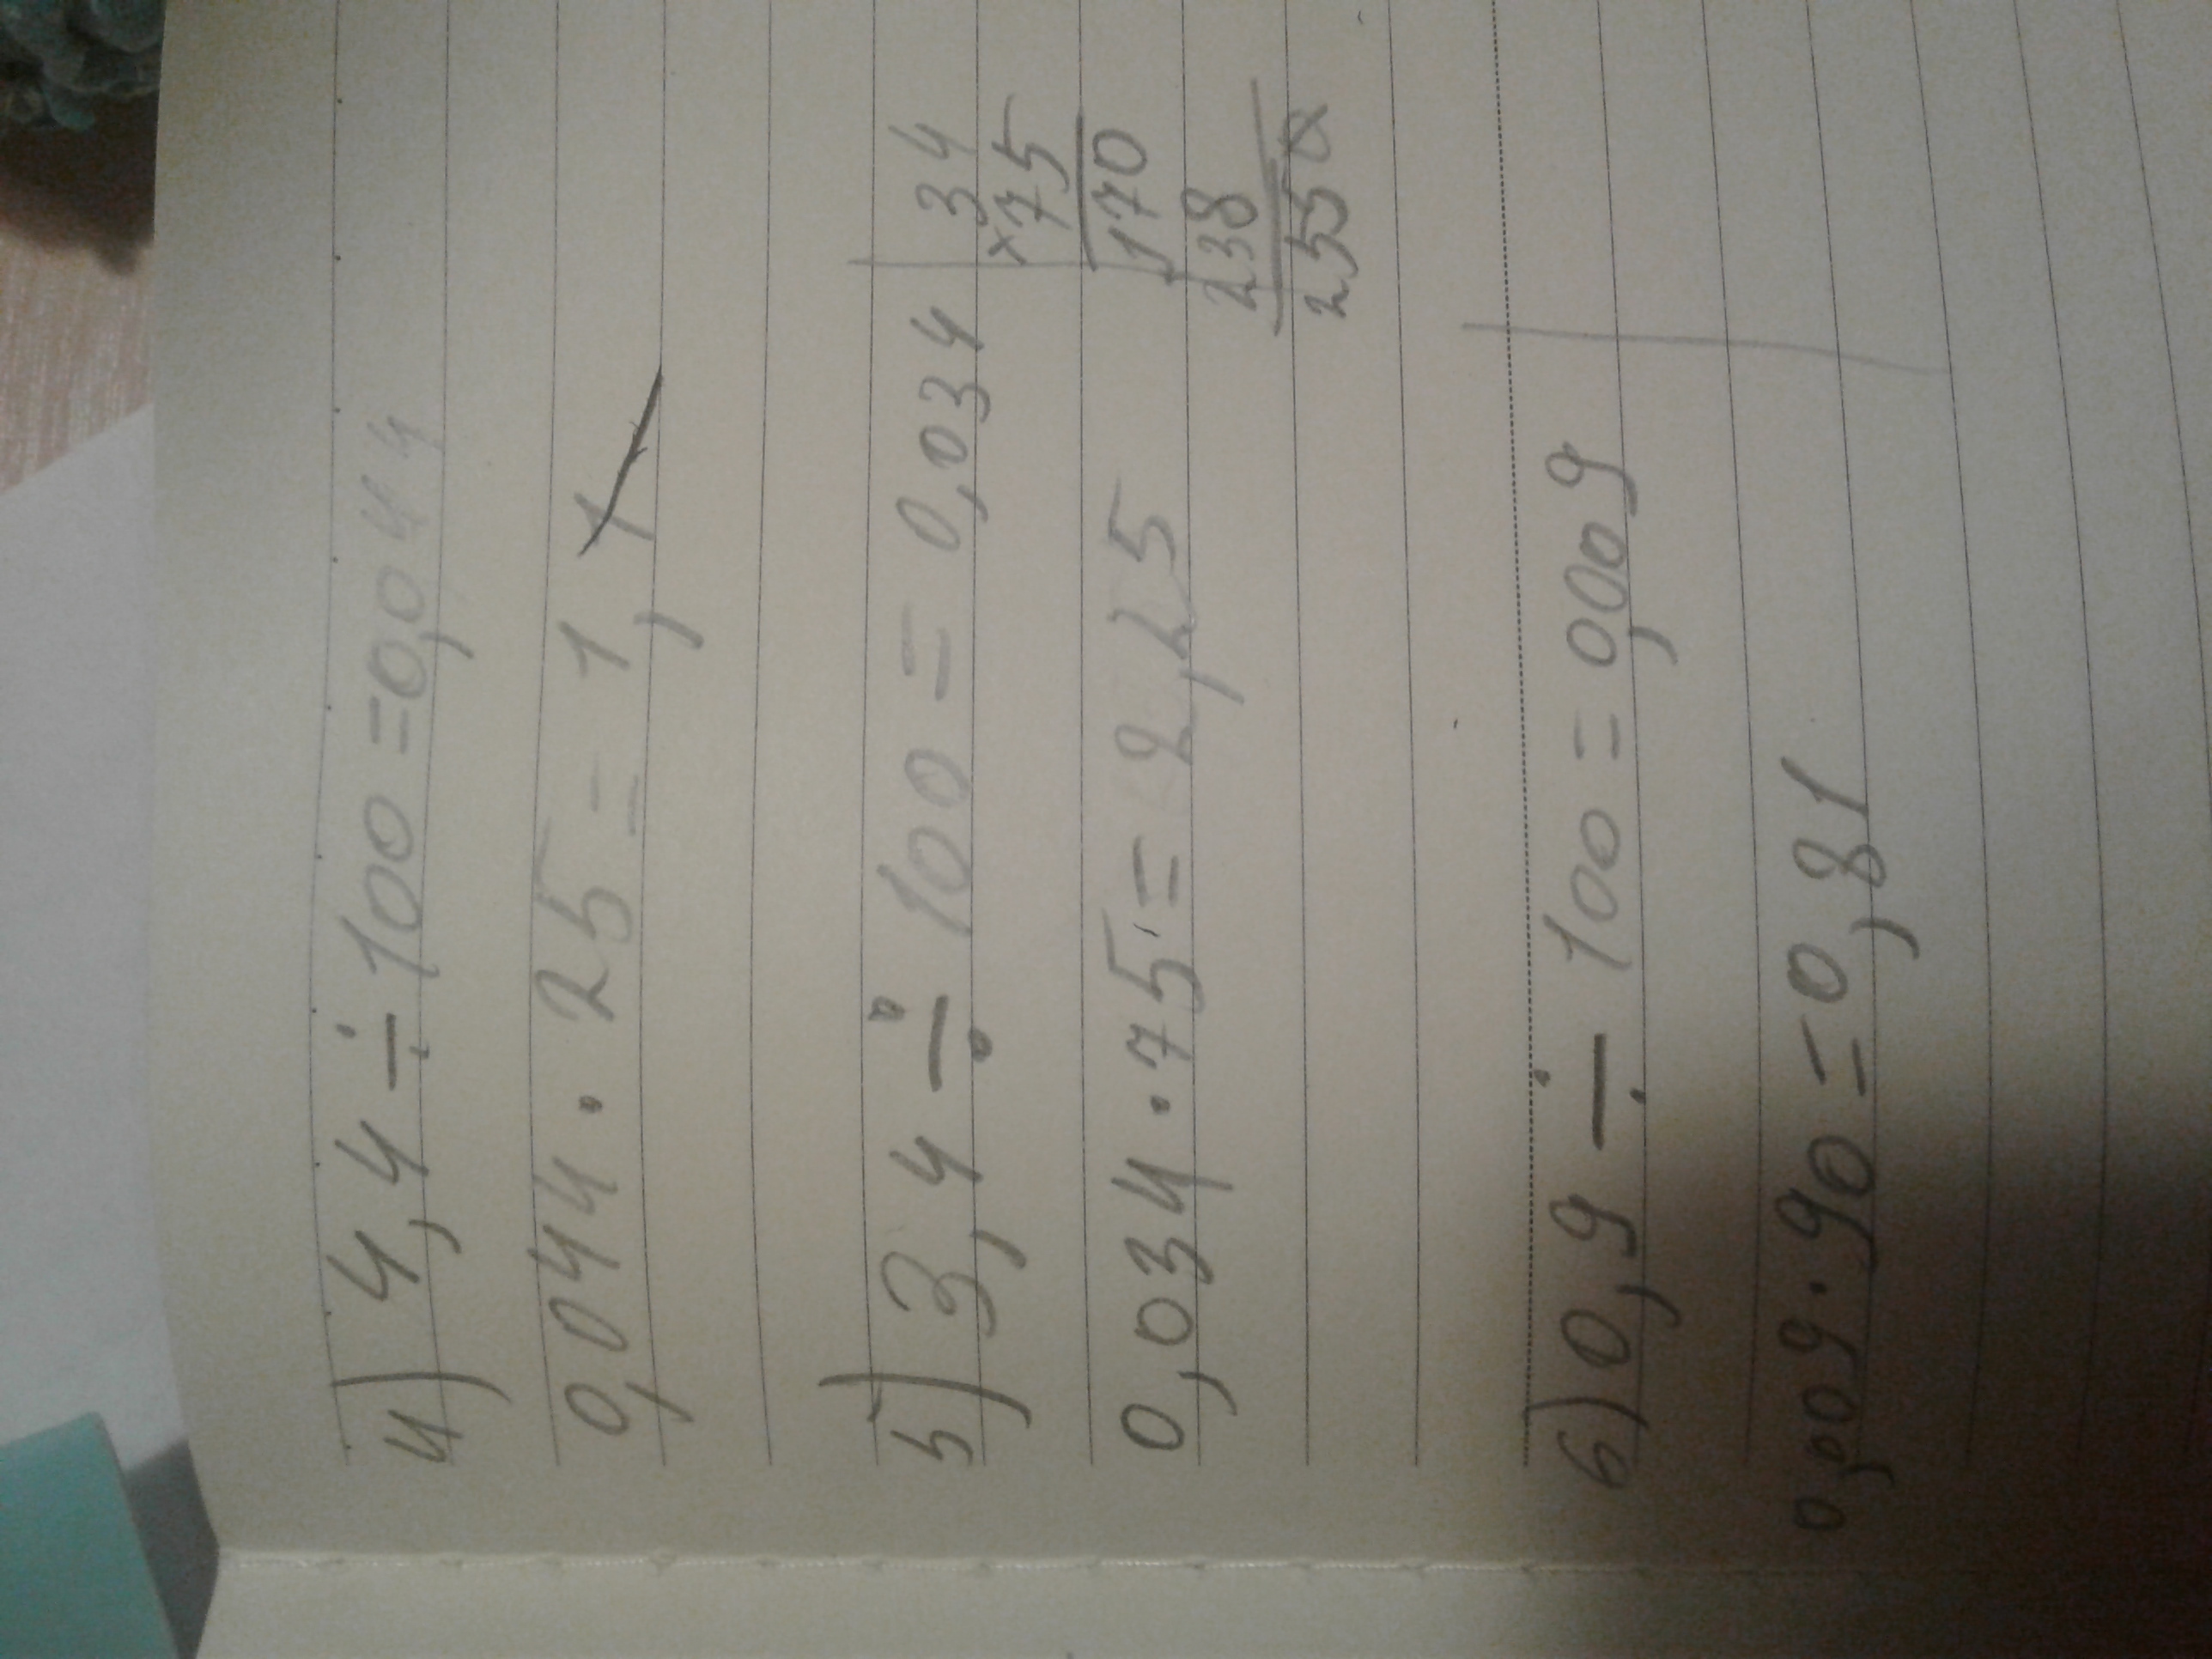 4) 4,4 ÷ 100 = 0,044
0,044 · 25 = 1,1
5) 3,4 ÷ 100 = 0,034
0,034 · 75 = 2,25
34
×75
170
238
2550
6) 0,9 ÷ 100 = 0,009
0,009 · 90 = 0,81